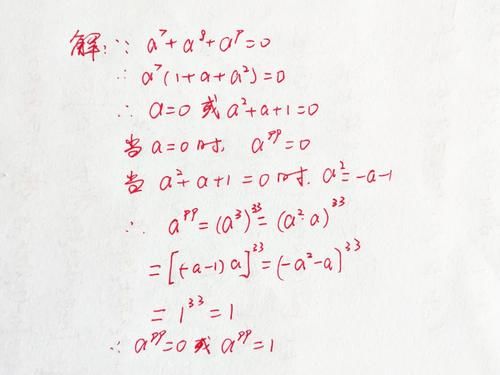 解:∵ a⁷+a⁸+a⁹=0
∴ a⁷(1+a+a²)=0
∴ a=0 或 a²+a+1=0
当 a=0 时, a⁹⁹=0
当 a²+a+1=0时. a²=-a-1
∴ a⁹⁹=(a³)³³=(a²·a)³³
=[(-a-1)a]³³=(-a²-a)³³
=1³³=1
∴ a⁹⁹=0 或 a⁹⁹=1